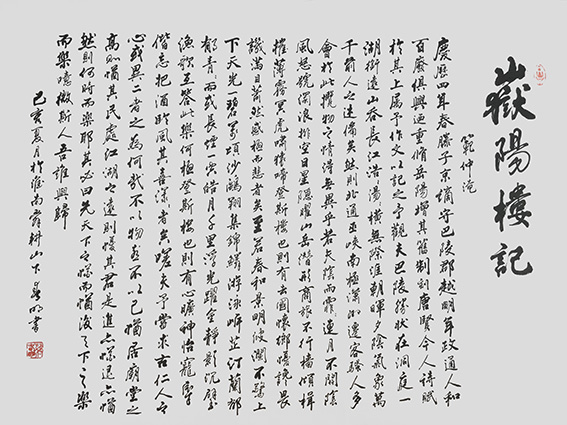 嶽陽樓記
範仲淹
慶歷四年春滕子京謫守巴陵郡越明年政通人和
百廢俱興迺重脩岳陽增其舊制刻唐賢今人詩賦
於其上屬予作文以記之予觀夫巴陵勝狀在洞庭一
湖銜遠山吞長江浩湯橫無際涯朝暉夕陰氣象萬
千前人之述備矣然則北通巫峽南極瀟湘遷客騷人多
會於此覽物之情得無異乎若夫陰雨霏連月不開陰
風怒號濁浪排空日星隱曜山岳潛形商旅不行檣傾楫
摧薄暮冥虎嘯猿啼登斯樓也則有去國懷鄉憂讒畏
譏滿目蕭然感極而悲者矣至若春和景明波瀾不驚上
下天光一碧萬頃沙鷗翔集錦鱗游泳岸芷汀蘭郁
郁青而或長煙一空皓月千里浮光躍金靜影沉璧
漁歌互答此樂何極登斯樓也則有心曠神怡寵辱
偕忘把酒臨風其喜洋者矣嗟夫予嘗求古仁人之
心或異二者之為何哉不以物喜不以己悲居廟堂之
高則憂其民處江湖之遠則憂其君是進亦憂退亦憂
然則何時而樂耶其必曰先天下之憂而憂後天下之樂
而樂噫微斯人吾誰與歸
己亥夏月於淮南耕山下明書